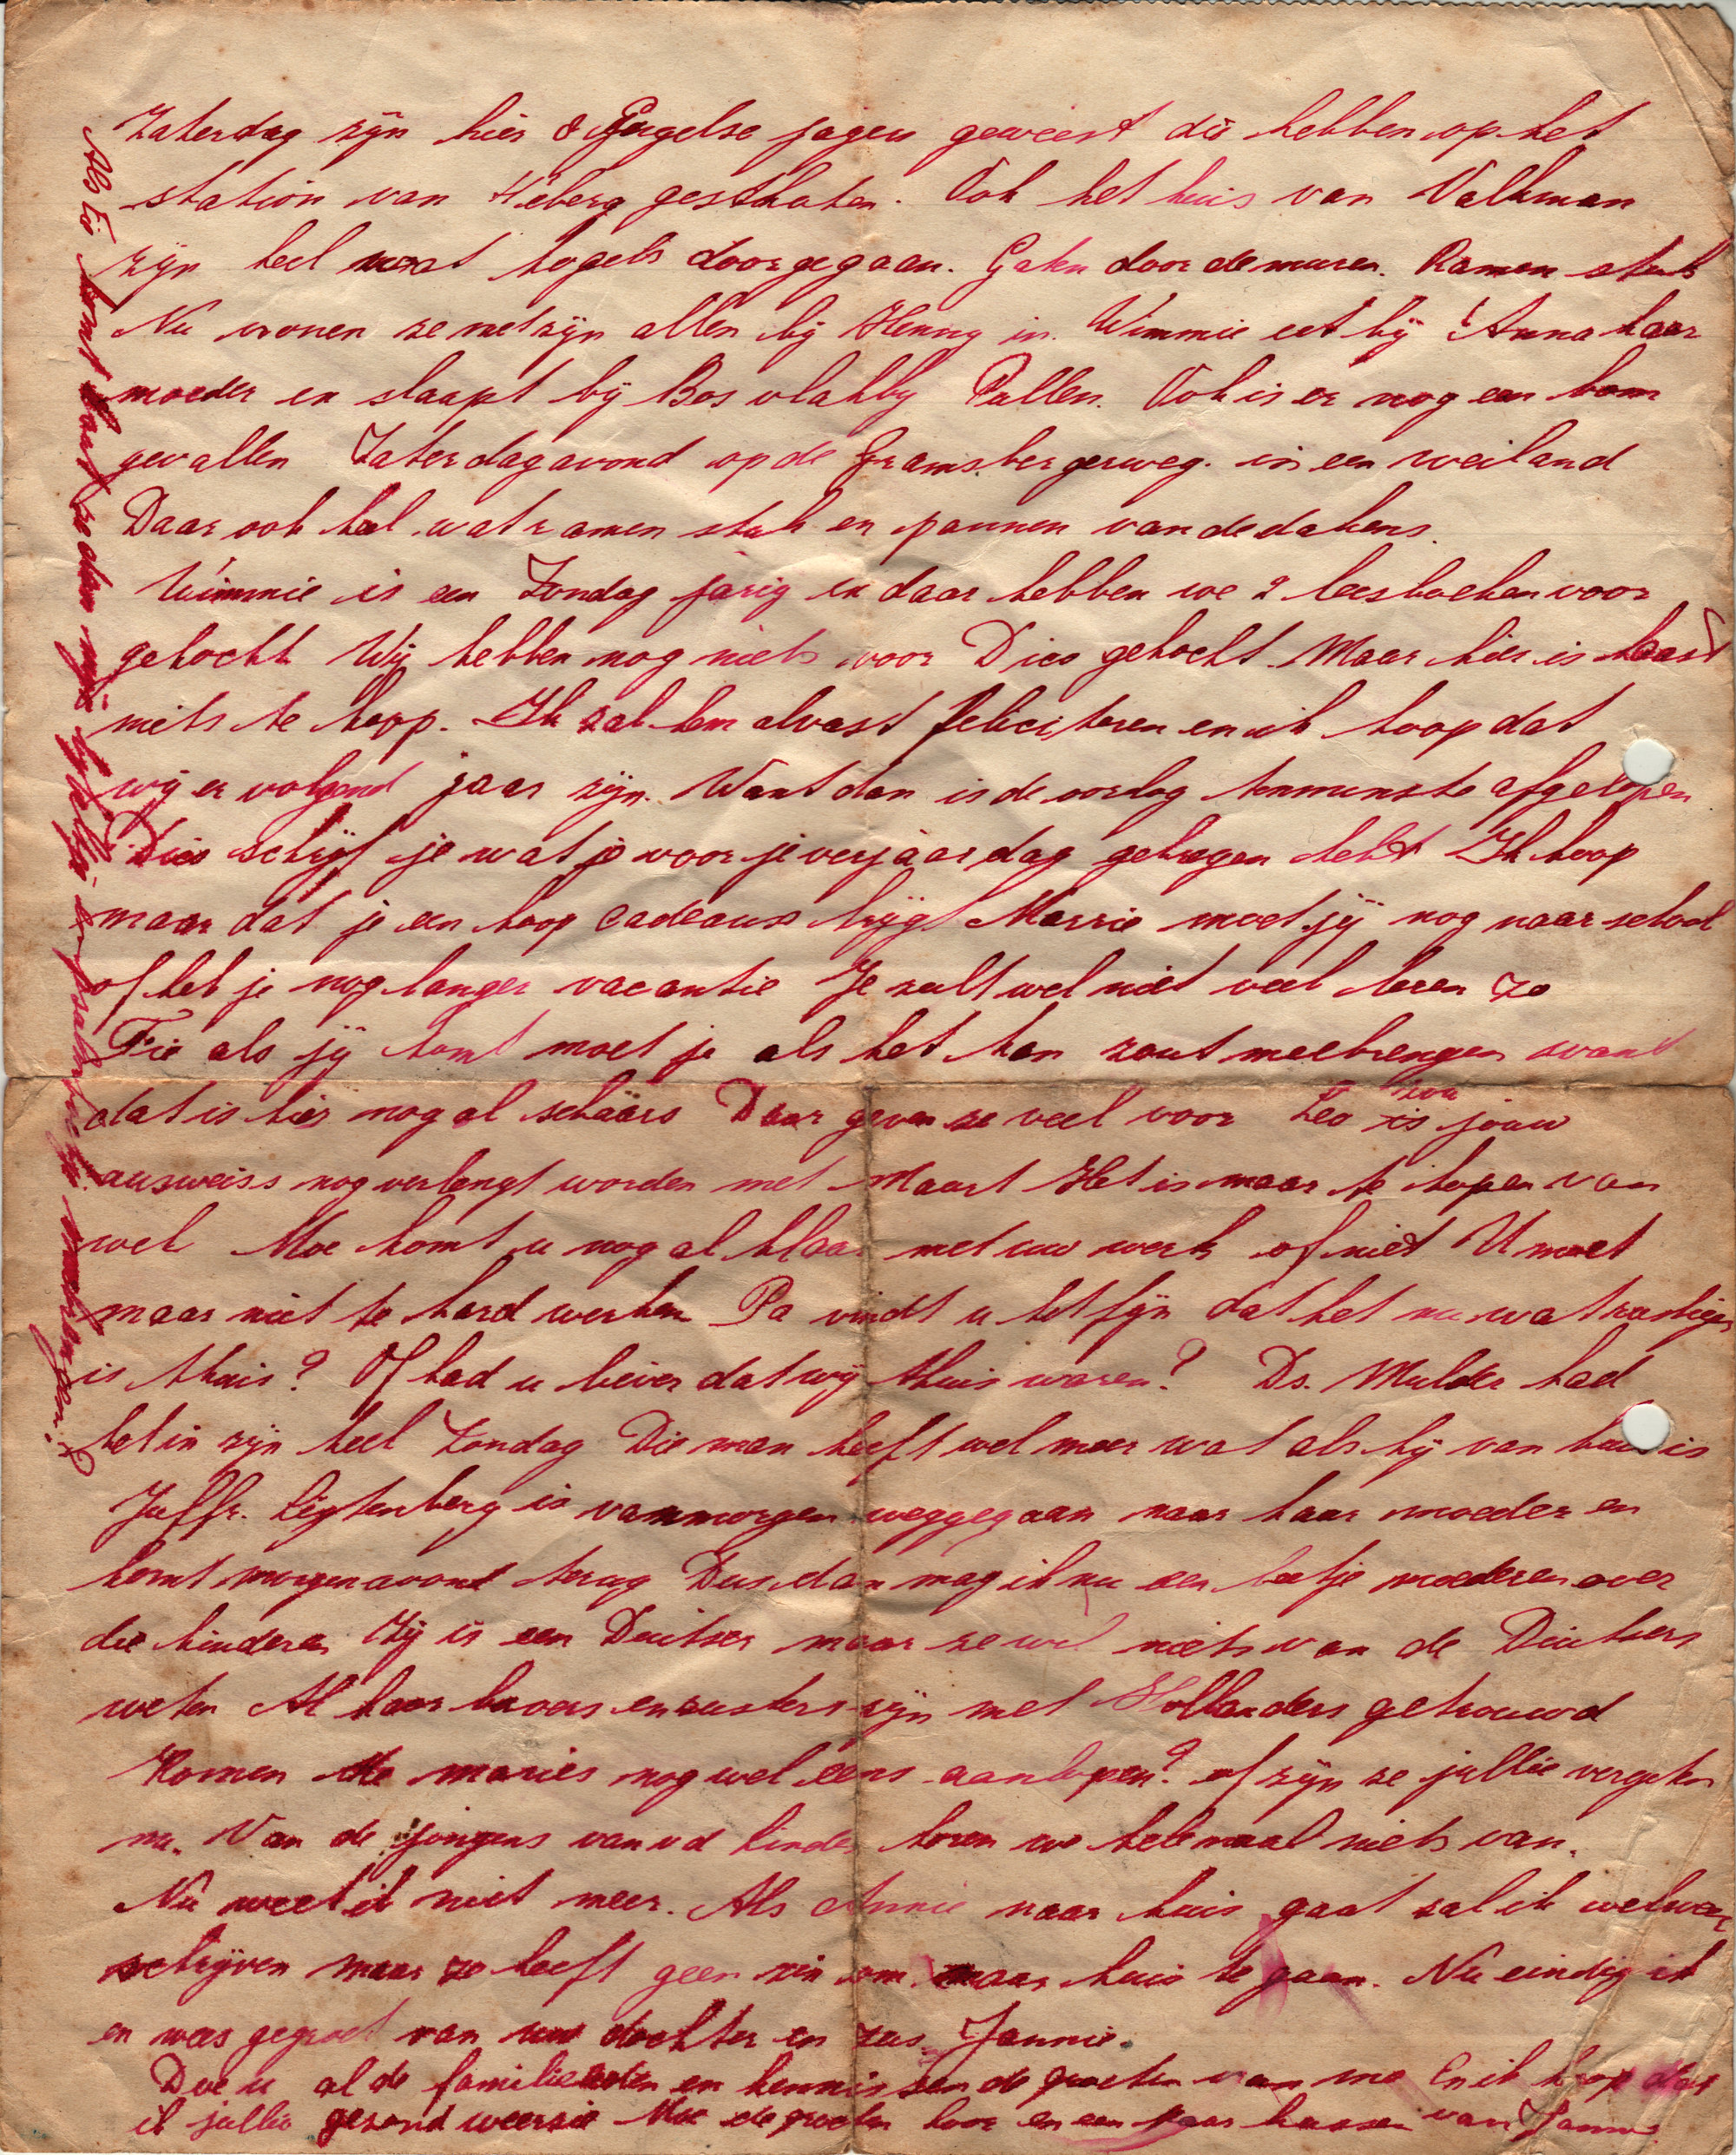 Zaterdag zijn hier 8 Engelse jagers geweest die hebben op het
station van H.berg geschoten. Ook het huis van Valkman
zijn heel wat kogels door gegaan. Gaten door de muren. Ramen stuk
Nu wonen ze met zijn allen bij Henny in. Wimmie eet bij Anna haar
moeder en slaapt bij Bos vlakbij Pullen. Ook is er nog een bom
gevallen Zaterdagavond op de Gramsbergerweg. in een weiland
Daar ook heel wat ramen stuk en pannen van de dakens.
Wimmie is een Zondag jarig en daar hebben we 2 leesboeken voor
gekocht Wij hebben nog niets voor Dico gekocht. Maar hier is haast
niets te koop. Ik zal hem alvast feliciteren en ik hoop dat
wij er volgend jaar zijn. Want dan is de oorlog tenminste afgelopen
Dico schrijf je wat je voor je verjaardag gekregen hebt Ik hoop
maar dat je een hoop cadeaus krijgt Marrie moet jij nog naar school
of heb je nog langer vacantie Je zult wel niet veel leren zo
Fie als jij komt moet je als het kan zout meebrengen want
dat is hier nogal schaars Daar geven ze veel voor Leo zou jouw
ausweiss nog verlengt worden met Maart Het is maar te hopen van
wel Moe komt u nogal klaar met uw werk of niet U moet
maar niet te hard werken Pa vindt u het fijn dat het nu wat rustiger
is thuis? Of had u liever dat wij thuis waren? Ds. Mulder had
het in zijn keel Zondag Die man heeft wel meer wat als hij van huis is
Juffr. Ligtenberg is vanmorgen weggegaan naar haar moeder en
komt morgenavond terug Dus dan mag ik nu een beetje moederen over
die kinderen Zij is een Duitser maar ze wil niets van de Duitsers
weten Al haar broers en zusters zijn met Hollanders getrouwd
Komen de maries nog wel eens aanlopen? of zijn ze jullie vergeten
nu. Van de jongens van vd Linden horen we helemaal niets van.
Nu weet ik niet meer. Als Annie naar huis gaat zal ik wel weer
schrijven maar ze heeft geen zin om naar huis te gaan. Nu eindig ik
en wees gegroet van uw dochter en zus. Jannie.
Doe u al de familieleden en kennissen de groeten van me En ik hoop dat
ik jullie gezond weerzie Moe de groeten hoor en een paar kussen van Jannie
Als Fie komt laat ze dan mijn